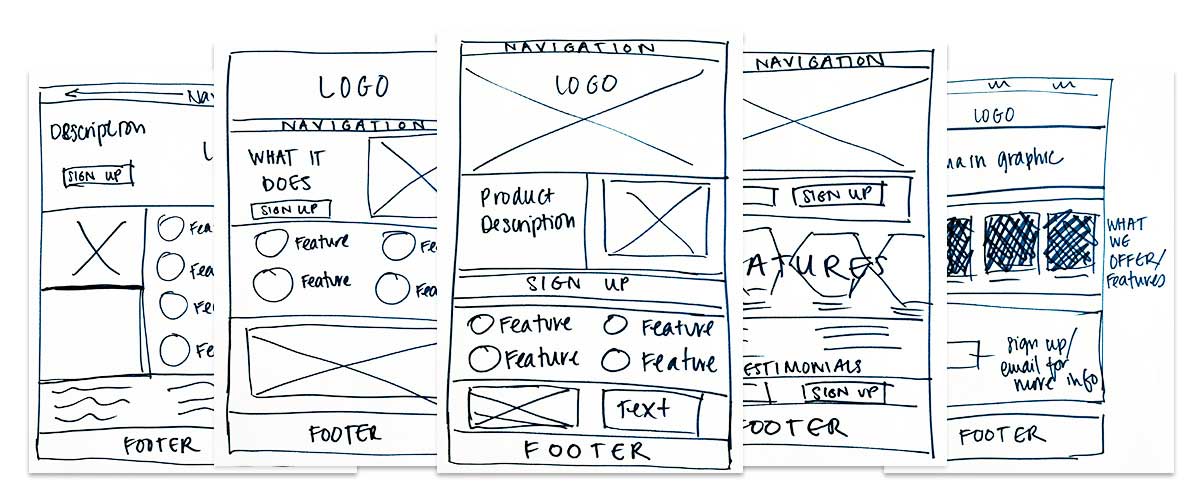 Nav
Description
SIGN UP
Fea
Fea
Fe
Fe
FOOTER
LOGO
NAVIGATION
WHAT IT
DOES
SIGN UP
Feature
Fe
Feature
Fea
FOOTER
NAVIGATION
LOGO
Product
Description
SIGN UP
Feature
Feature
Feature
Feature
Text
FOOTER
NAVIGATION
SIGN UP
ATURES
ESTIMONIALS
SIGN UP
FOOTER
LOGO
main graphic
WHAT
WE
OFFER/
Features
sign up/
email for
more info
FOOTER